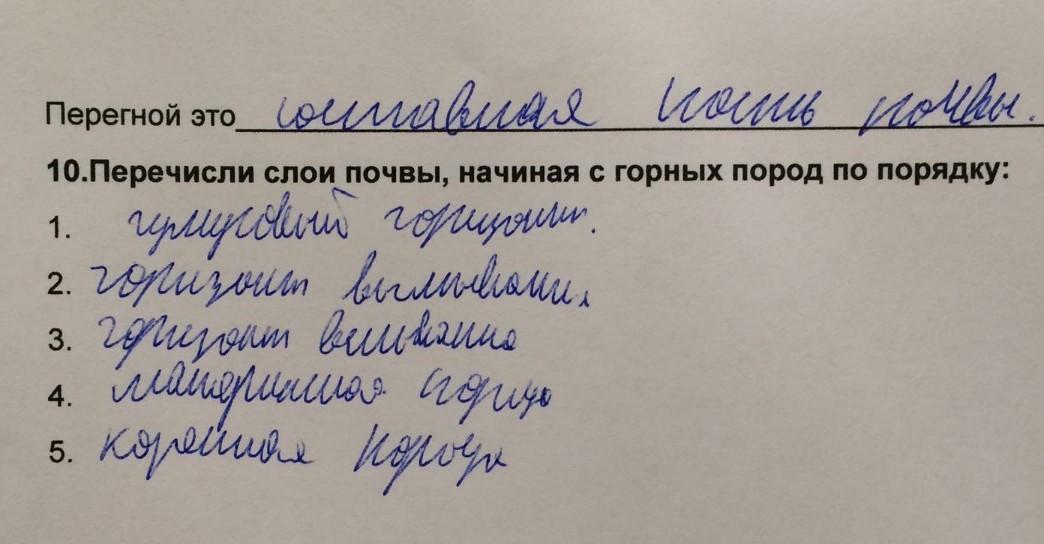 Перегной это составная часть почвы.
10.Перечисли слои почвы, начиная с горных пород по порядку:
1. гумусовый горизонт.
2. горизонт вымывания
3. горизонт вмывания
4. материнская порода
5. коренная порода